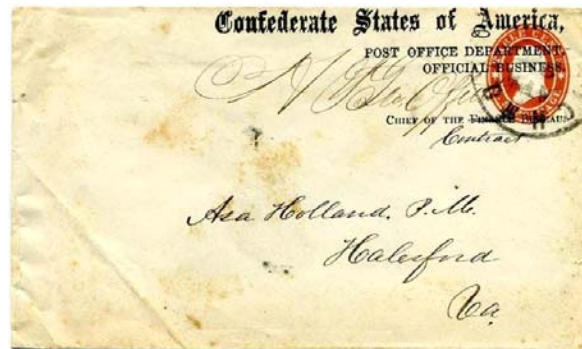 Confederate States of America,
POST OFFICE DEPARTMENT,
OFFICIAL BUSINESS.
CHIEF OF THE FINANCE BUREAU
Contract
Asa Holland. P.M.
Halesford
Va